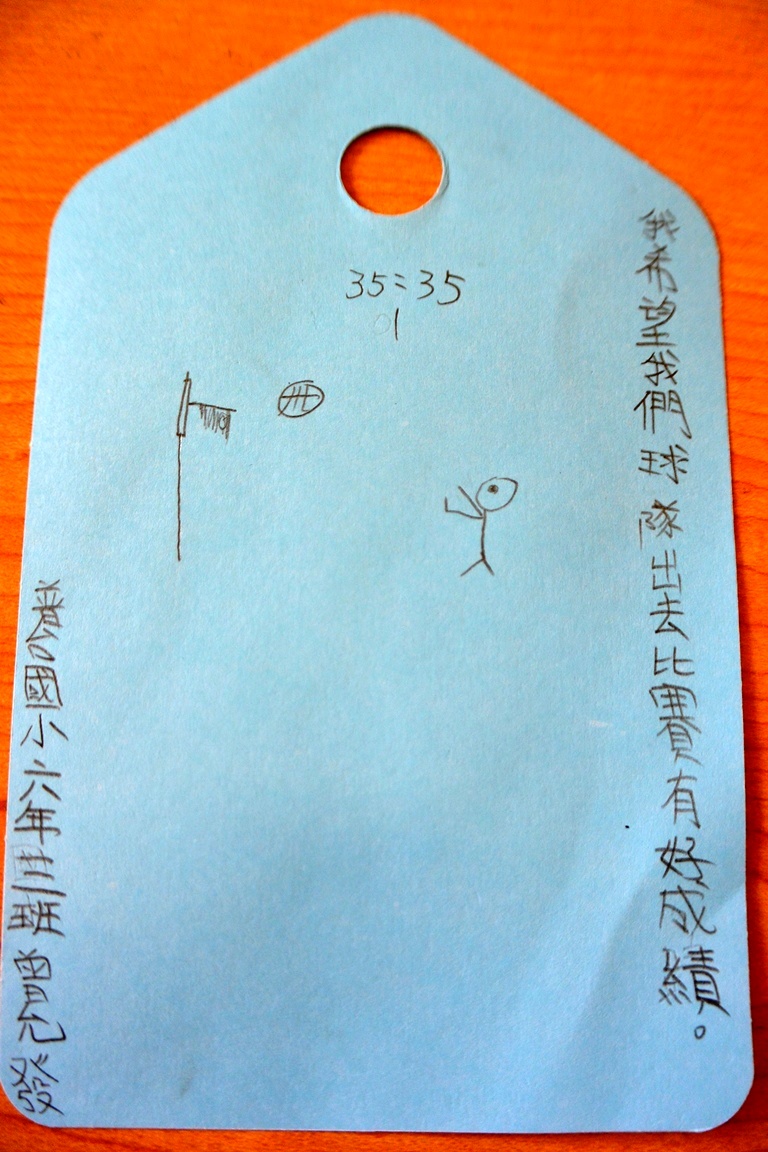 我希望我們球隊出去比賽有好成績。
35:35
01
普台國小六年三班曾允發